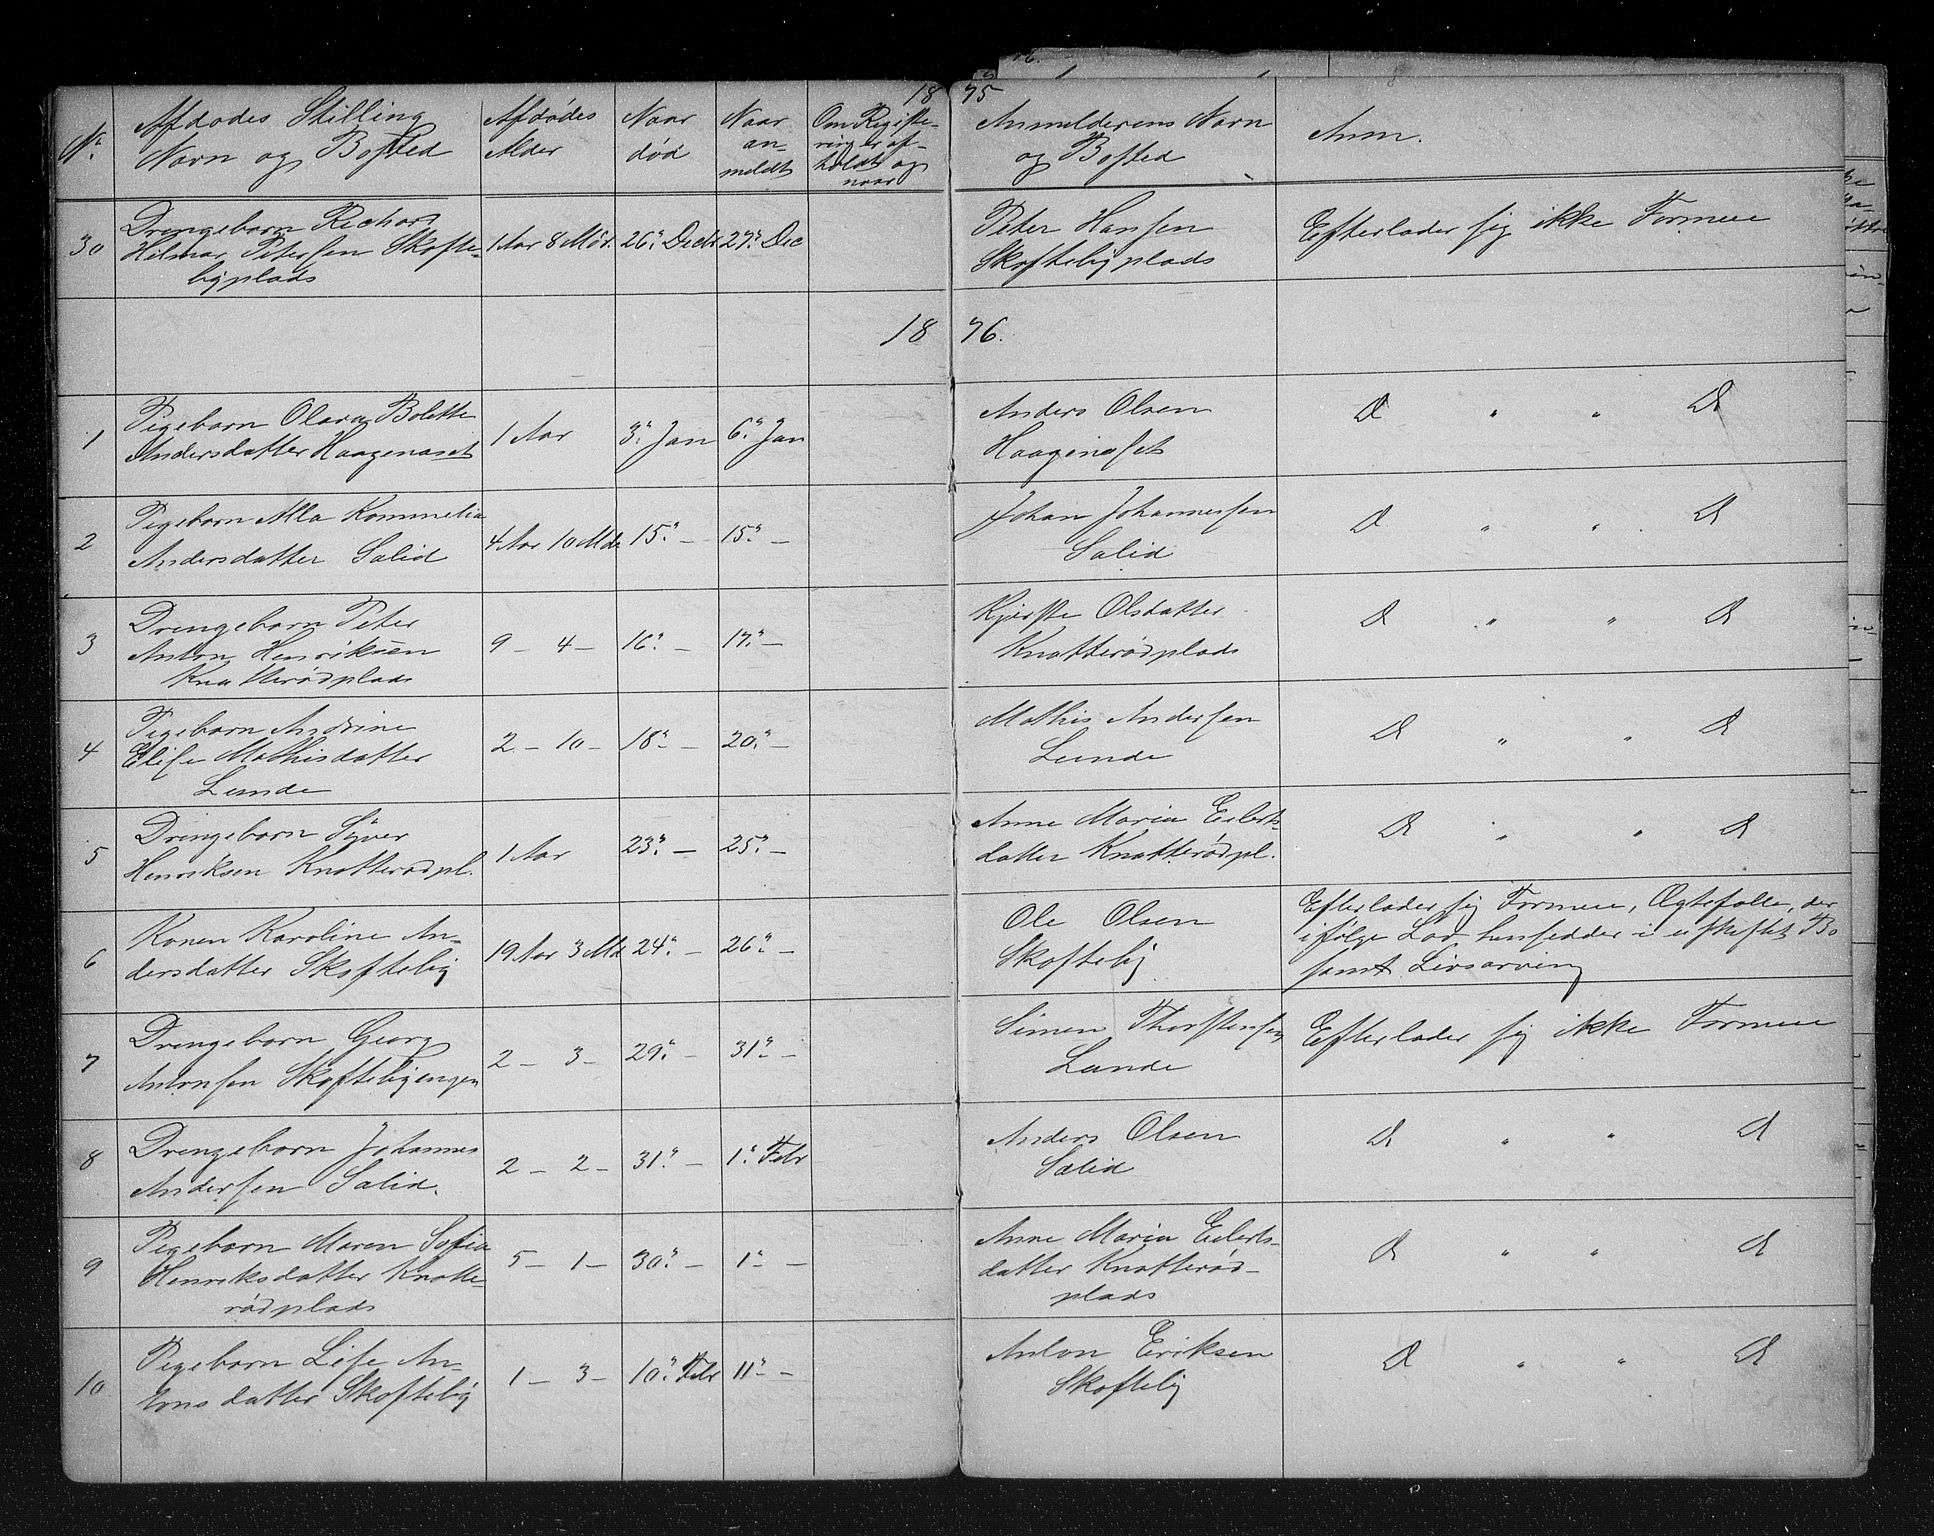 18 75
No.
Afdødes Stilling
Navn og Bosted
Afdødes
Alder
Naar
død
Naar
an-
meldt
Om Registe-
ring er af-
holdt og
naar
Anmelderens Navn
og Bosted
Anm.
30
Drengebarn Richard
Hilmar Petersen Skofte-
byplads
1 Aar 8 Mdr.
26. Decbr
27. Dec
Peter Hansen
Skoftebyplads
Efterlader sig ikke Formue
18 76.
1
Pigebarn Olava Bolette
Andersdatter Haagenaset
1 Aar
3. Jan
6. Jan
Anders Olsen
Haagenaset
D " " D
2
Pigebarn Alla Kommelia
Andersdatter Salid
4 Aar 10 Mdr
15. —
15. —
Johan Johannessen
Salid
D " " D
3
Drengebarn Peter
Anton Henriksen
Knatterødplads
9 — 4 —
16. —
17. —
Kjerste Olsdatter
Knatterødplads
D " " D
4
Pigebarn Andrine
Elise Mathisdatter
Lunde
2 — 10 —
18. —
20. —
Mathis Andersen
Lunde
D " " D
5
Drengebarn Syver
Henriksen Knatterødpl.
1 Aar
23. —
25. —
Anne Maria Eilerts-
datter Knatterødpl.
D " " D
6
Konen Karoline An-
dersdatter Skofteby
19 Aar 3 Md
24. —
26. —
Ole Olsen
Skofteby
Efterlader sig Formue, Ægtefælle, der
ifølge Lov hensidder i uskiftet Bo
samt Livsarving
7
Drengebarn Georg
Antonsen Skoftebyengen
2 — 3 —
29. —
31. —
Simen Thorstensen
Lunde
Efterlader sig ikke Formue
8
Drengebarn Johannes
Andersen Salid.
2 — 2 —
31. —
1. Febr
Anders Olsen
Salid
D " " D
9
Pigebarn Maren Sofia
Henriksdatter Knatte-
rødplads
5 — 1 —
30. —
1. —
Anne Maria Eilerts-
datter Knatterød-
plads
D " " D
10
Pigebarn Lise An-
tonsdatter Skofteby
1 — 3 —
10. Febr
11. —
Anton Eriksen
Skofteby
D " " D